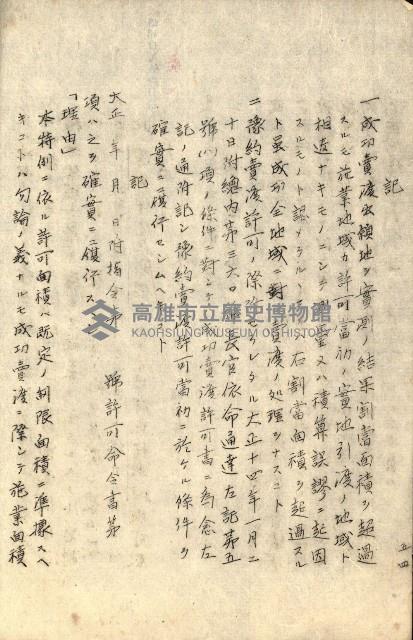 記
一成功賣渡出願地ヲ實測ノ結果割當面積ヲ超過
スルモ施業地域カ許可當初ノ實地引渡ノ地域ト
相違ナキモノニシテ測量又ハ積算誤謬ニ起因
スルモノト認メラルヽ 右割當面積ヲ超過スル
ト雖成功全地域ニ對 賣渡ノ処理ヲナスコト
二豫約賣渡許可ノ際 レタル大正十四年一月二
十日附總内第三六 長官依命通達左記第五
號 項ノ條件ニ對シテ 功賣渡許可書ニ為念左
記ノ通附記シ豫約賣 許可當初ニ於ケル條件ヲ
確實ニ履行セシムヘキコト
記
大正 年 月 日附指令第 號許可命令書第
項ハ之ヲ確實ニ履行スヘシ
「理由」
本特例ニ依ル許可面積ハ既定ノ制限面積ニ準據スヘ
キコトハ勿論ノ義ナルモ成功賣渡ニ際シテ施業面積
五四
高雄市立歷史博物館
KAOHSIUNG MUSEUM OF HISTORY